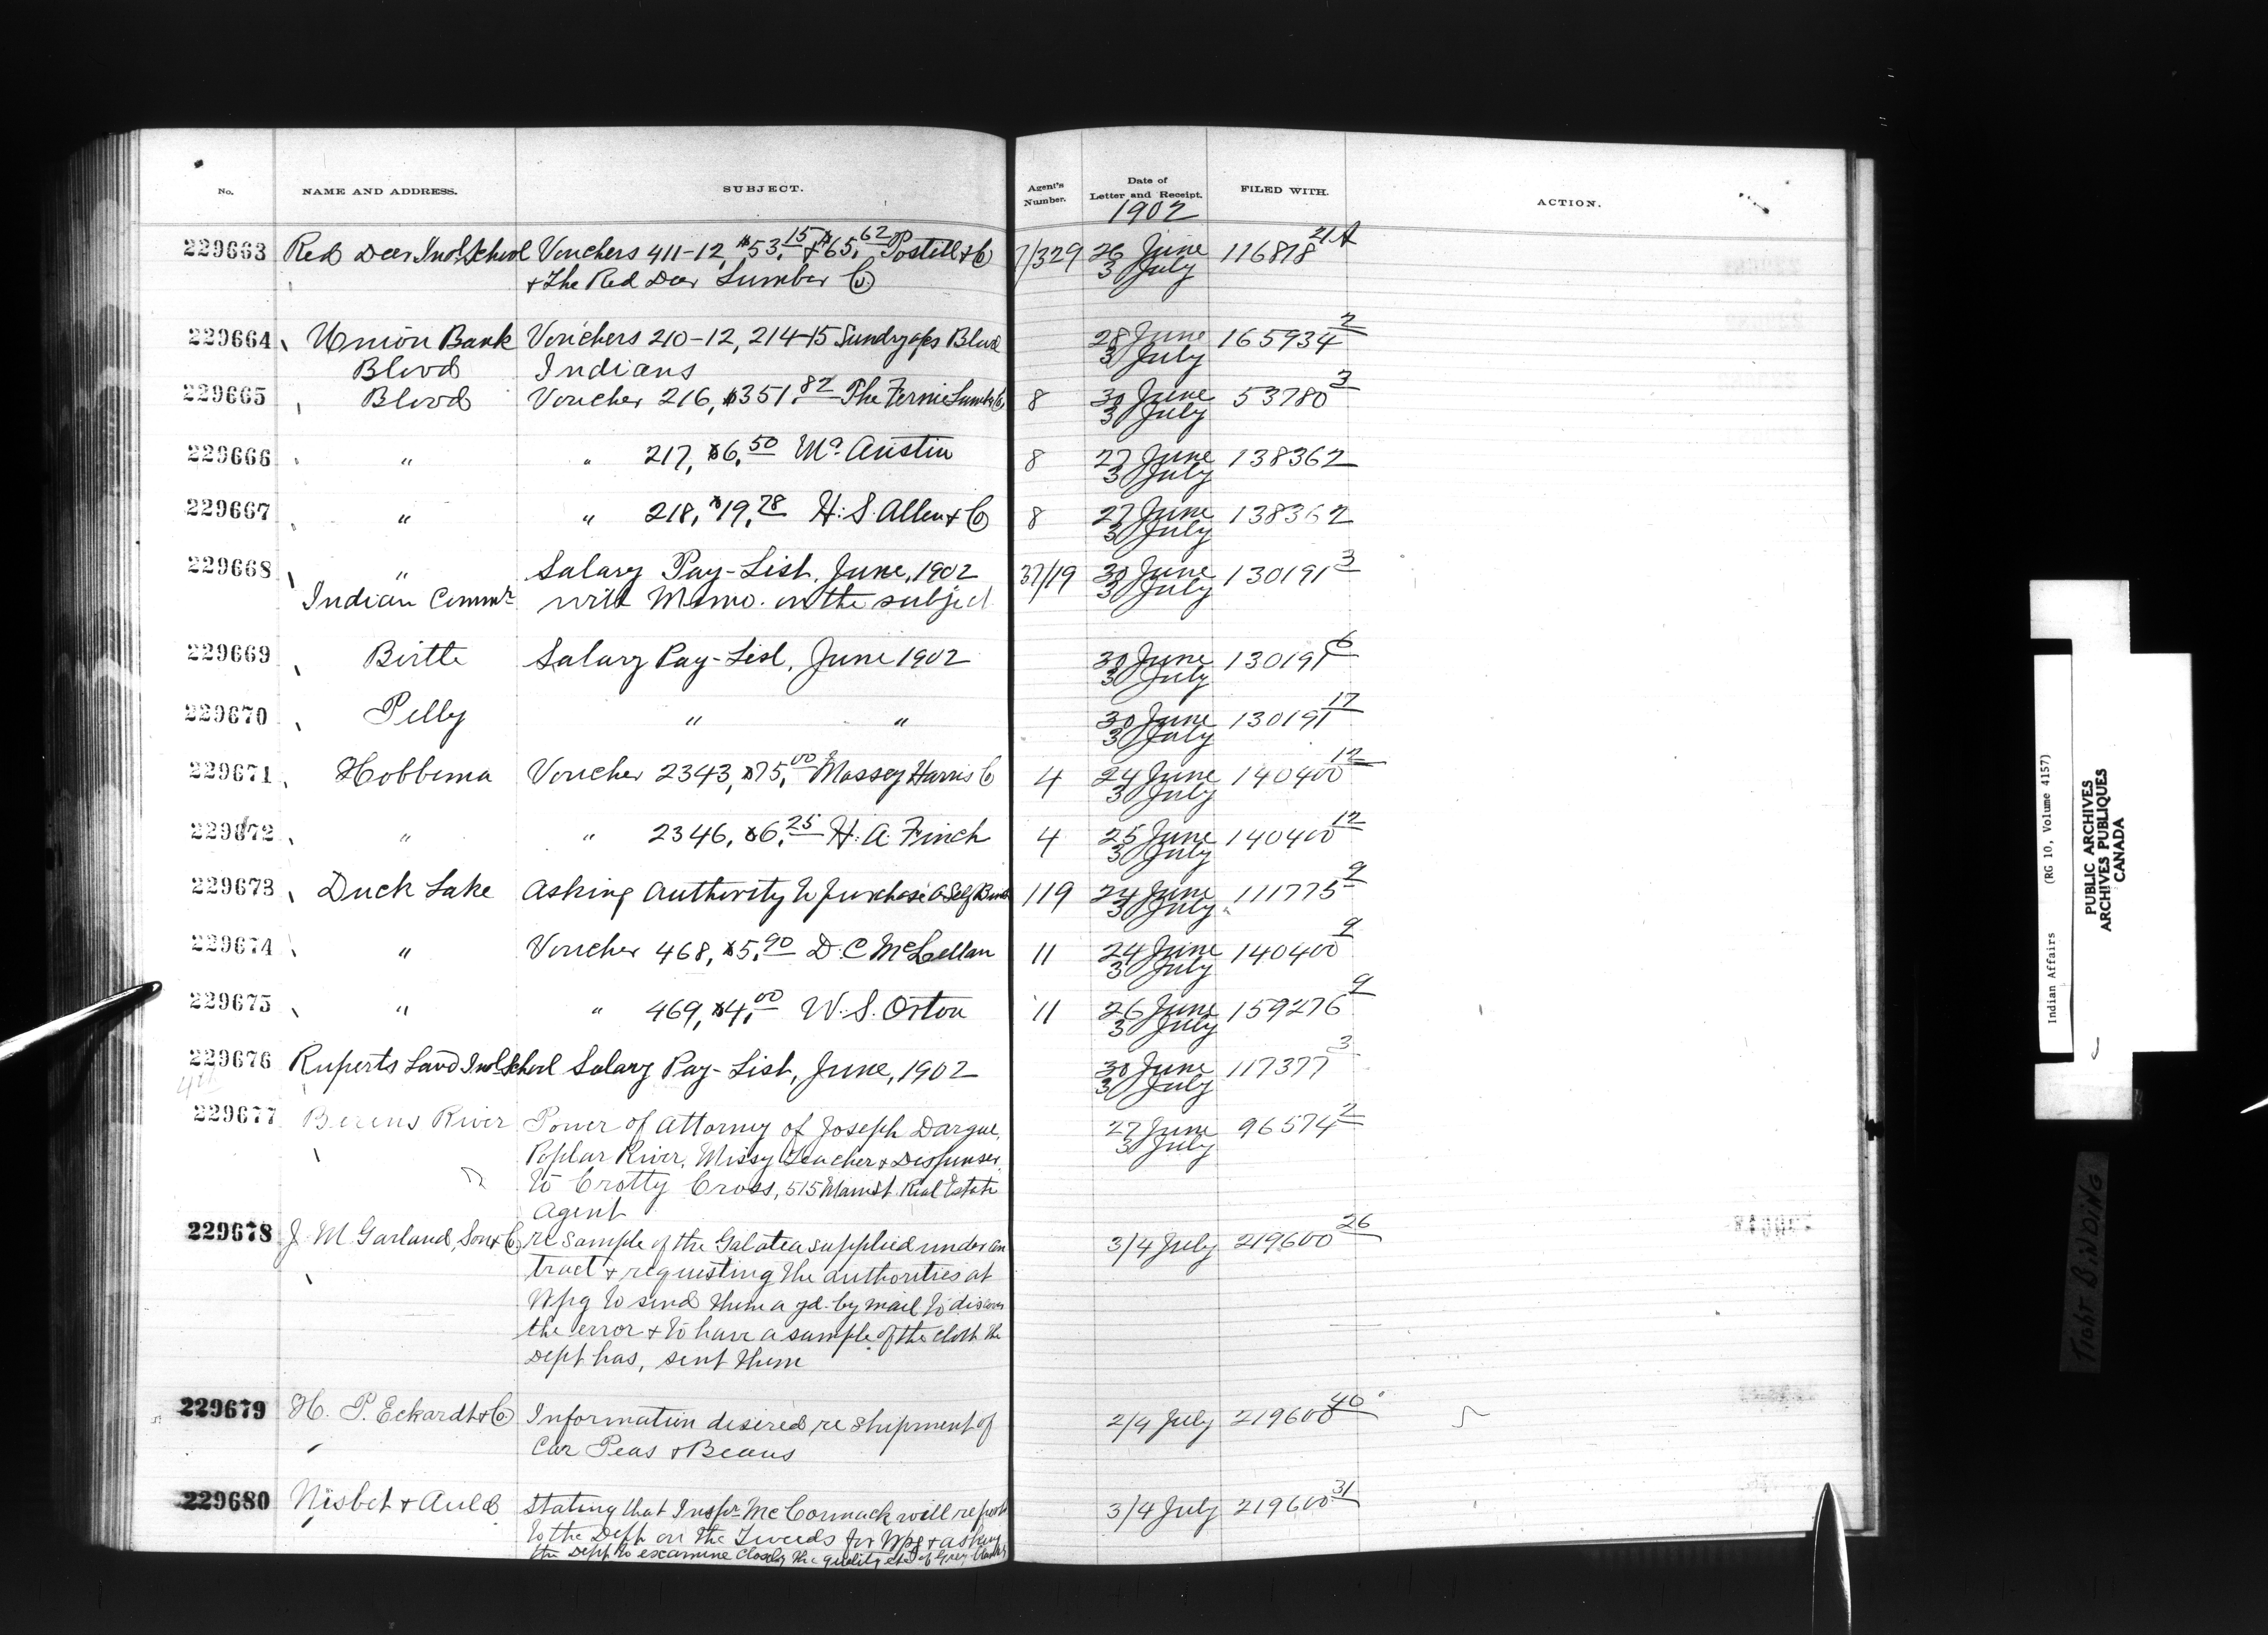 No. NAME AND ADDRESS. SUBJECT. Agent's Number. Date of Letter and Receipt. FILED WITH. ACTION.
1902
229663 Red Deer Indl School Vouchers 411-12, $53.15 + $65.62 Postill & Co 7/329 26 June 116818 21A
& The Red Deer Lumber Co. 3 July
229664 Union Bank Vouchers 210-12, 214-15 Sundry a/cs Blood 28 June 165934 2
Blood Indians 3 July
229665 Blood Voucher 216, $351.82 The Fernie Lumber Co 8 30 June 53780 3
3 July
229666 " " 217, $6.50 Austin 8 27 June 138362
3 July
229667 " " 218, $19.78 H. S. Allen & Co 8 27 June 138362
3 July
229668 " Salary Pay-List, June, 1902 37/19 30 June 130191 3
Indian Commr with Memo. on the subject 3 July
229669 Birtle Salary Pay-List, June 1902 30 June 130191 6
3 July
229670 Pelly " " 30 June 130191 17
3 July
229671 Hobbema Voucher 2343, $75.00 Massey Harris Co 4 24 June 140400 12
3 July
229672 " " 2346, $6.25 H. A. Finch 4 25 June 140400 12
3 July
229673 Duck Lake Asking Authority to purchase a Self Binder 119 24 June 111775 9
3 July
229674 " Voucher 468, $5.90 D. C McLellan 11 24 June 140400 9
3 July
229675 " " 469, $4.00 W. S. Orton 11 26 June 159276 9
3 July
229676 Ruperts Land Indl School Salary Pay-List, June, 1902 30 June 117377 3
3 July
229677 Berens River Power of Attorney of Joseph Dargue, 27 June 96574 2
Poplar River, Missy Teacher & Dispenser, 3 July
to Crotty Cross, 515 Main St. Real Estate
Agent
229678 J. M Garland, Son & Co re sample of the Galatea supplied under con 3/4 July 219600 26
tract & requesting the authorities at
Wpg to send them a yd. by mail to discover
the error & to have a sample of the cloth the
Dept has, sent them
229679 H. P. Eckardt & Co Information desired re shipment of 2/4 July 219600 40
Car Peas & Beans
229680 Nisbet & Auld Stating that Inspr McCormack will report 3/4 July 219600 31
to the Dept on the Tweeds for Wpg & asking
the Dept to examine closely the quality etc of Grey
Indian Affairs (RG 10, Volume 4157)
PUBLIC ARCHIVES
ARCHIVES PUBLIQUES
CANADA
TIGHT BINDING